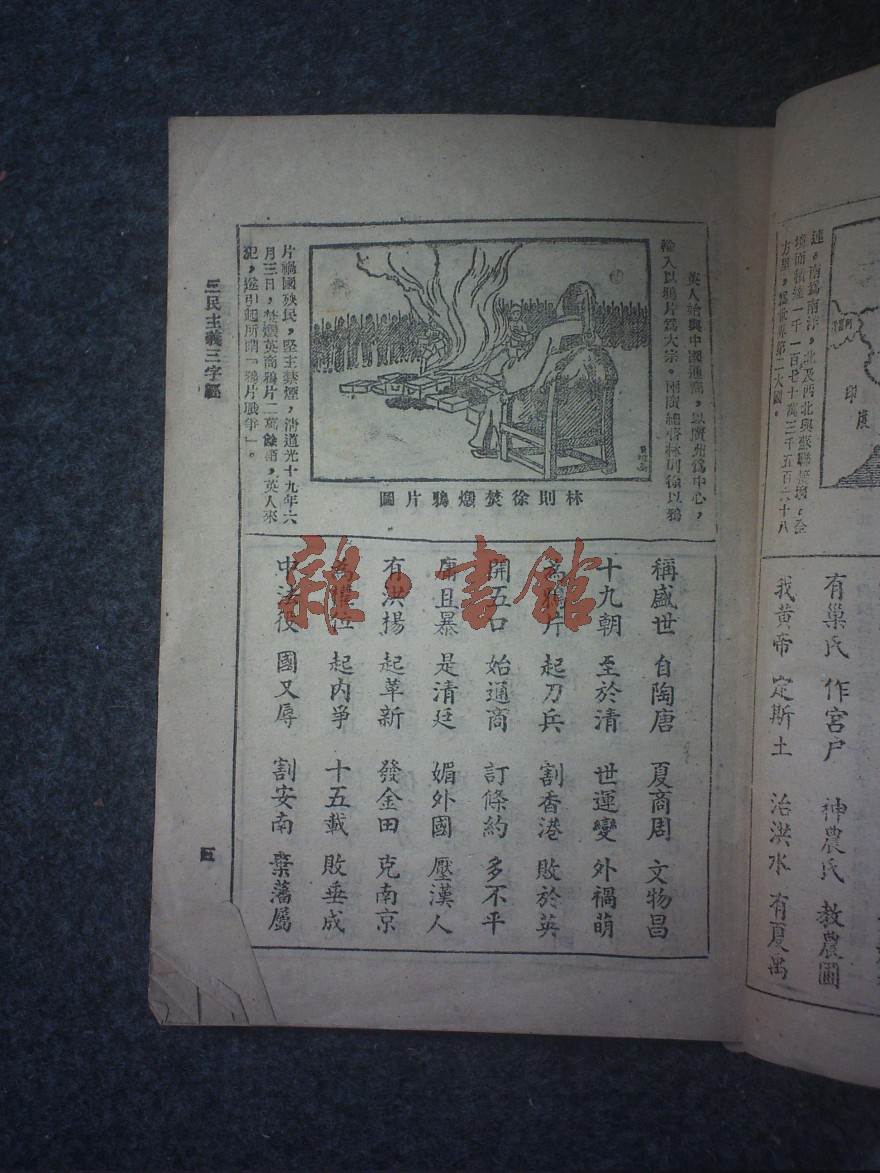 英人始與中國通商，以廣州爲中心，
輸入以鴉片爲大宗。兩廣總督林則徐以鴉
林則徐焚燬鴉片圖
片禍國殃民，堅主禁煙，清道光十九年六
月三日，焚燬英商鴉片二萬餘箱，英人來
犯，遂引起所謂「鴉片戰爭」。
稱盛世 自陶唐 夏商周 文物昌
十九朝 至於清 世運變 外禍萌
爲鴉片 起刀兵 割香港 敗於英
開五口 始通商 訂條約 多不平
庸且暴 是清廷 媚外國 壓漢人
有洪揚 起革新 發金田 克南京
爲權位 起內爭 十五載 敗垂成
中法役 國又辱 割安南 棄藩屬
三民主義三字經
五
雜·書館
連。南爲南洋，北及西北與蘇聯接壤，全
境面積達一千一百七十萬三千五百六十八
方里，爲世界第二大國。
印度
有巢氏 作宮戶 神農氏 教農圃
我黃帝 定斯土 治洪水 有夏禹